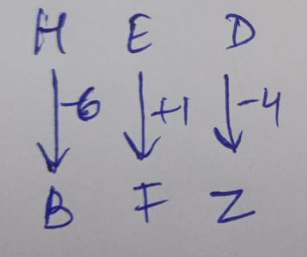 H E D
-6 +1 -4
B F Z